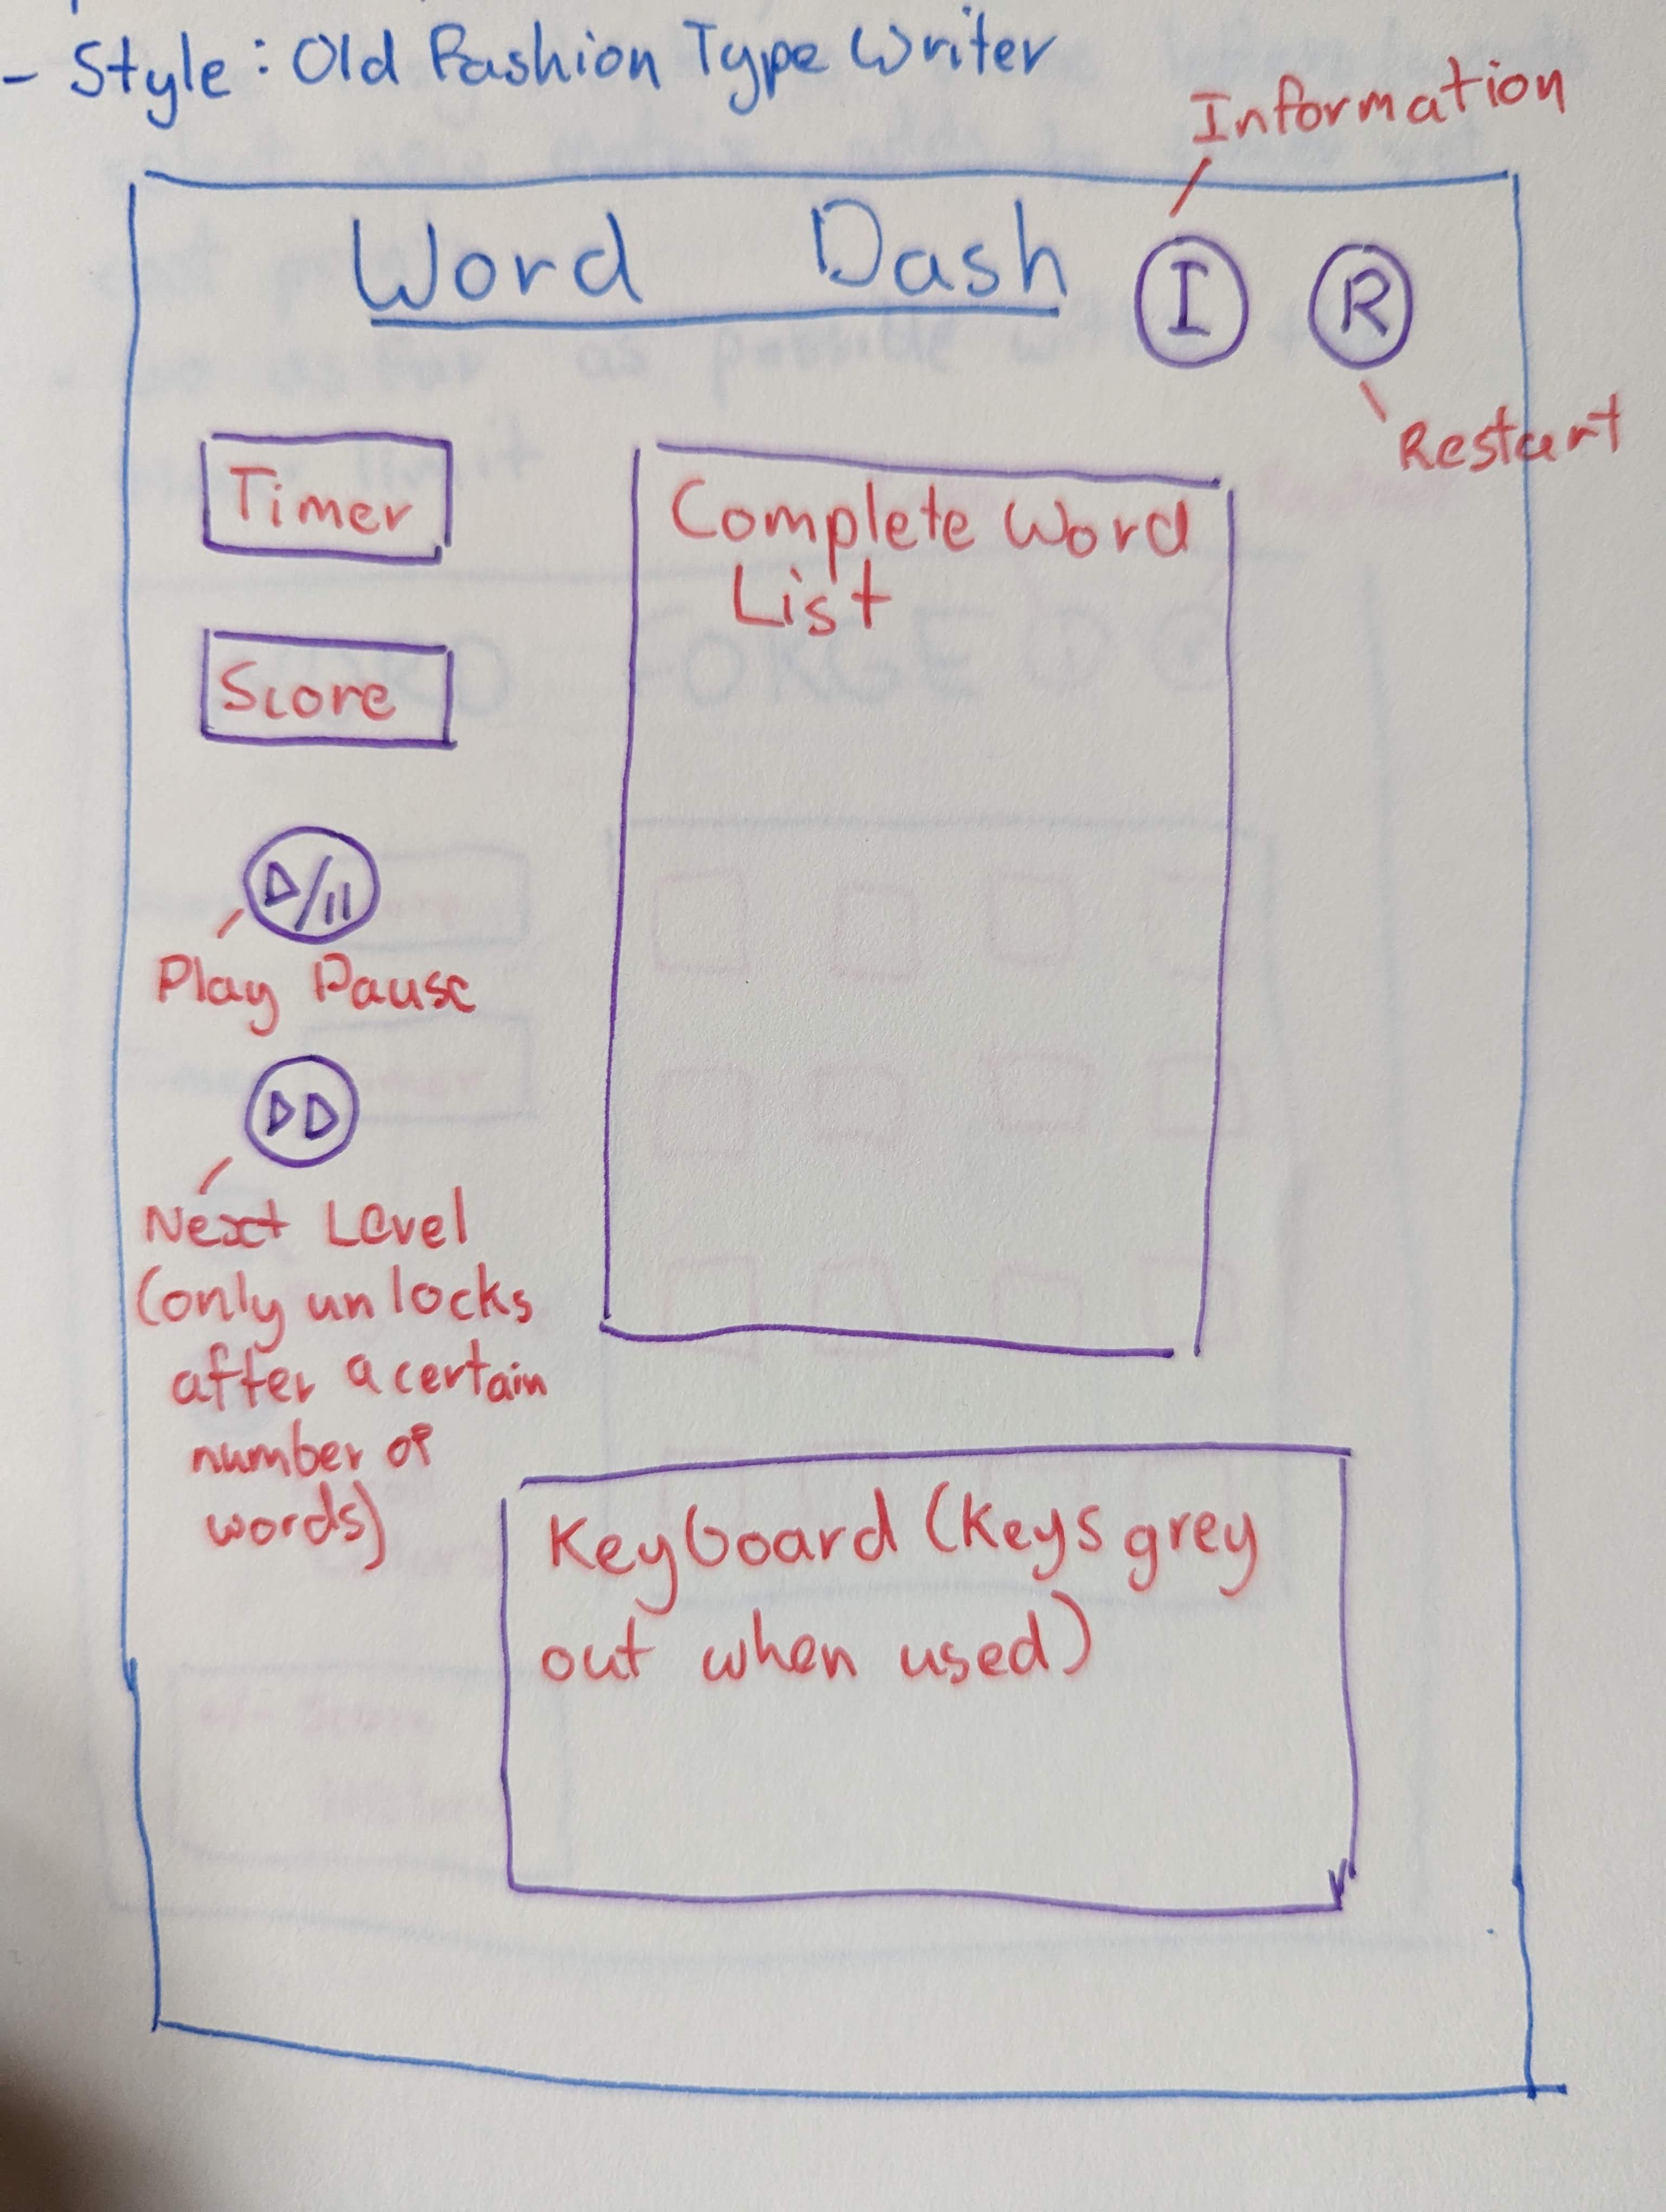 - Style: Old Fashion Type Writer
Information
Word Dash
I
R
Restart
Timer
Complete Word
List
Score
Play Pause
Next Level
(only unlocks
after a certain
number of
words)
Keyboard (Keys grey
out when used)